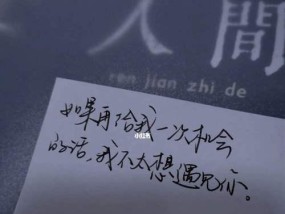 人間
ren jian zhi de
如果再给我一次机会
的话，我不太想遇见你。